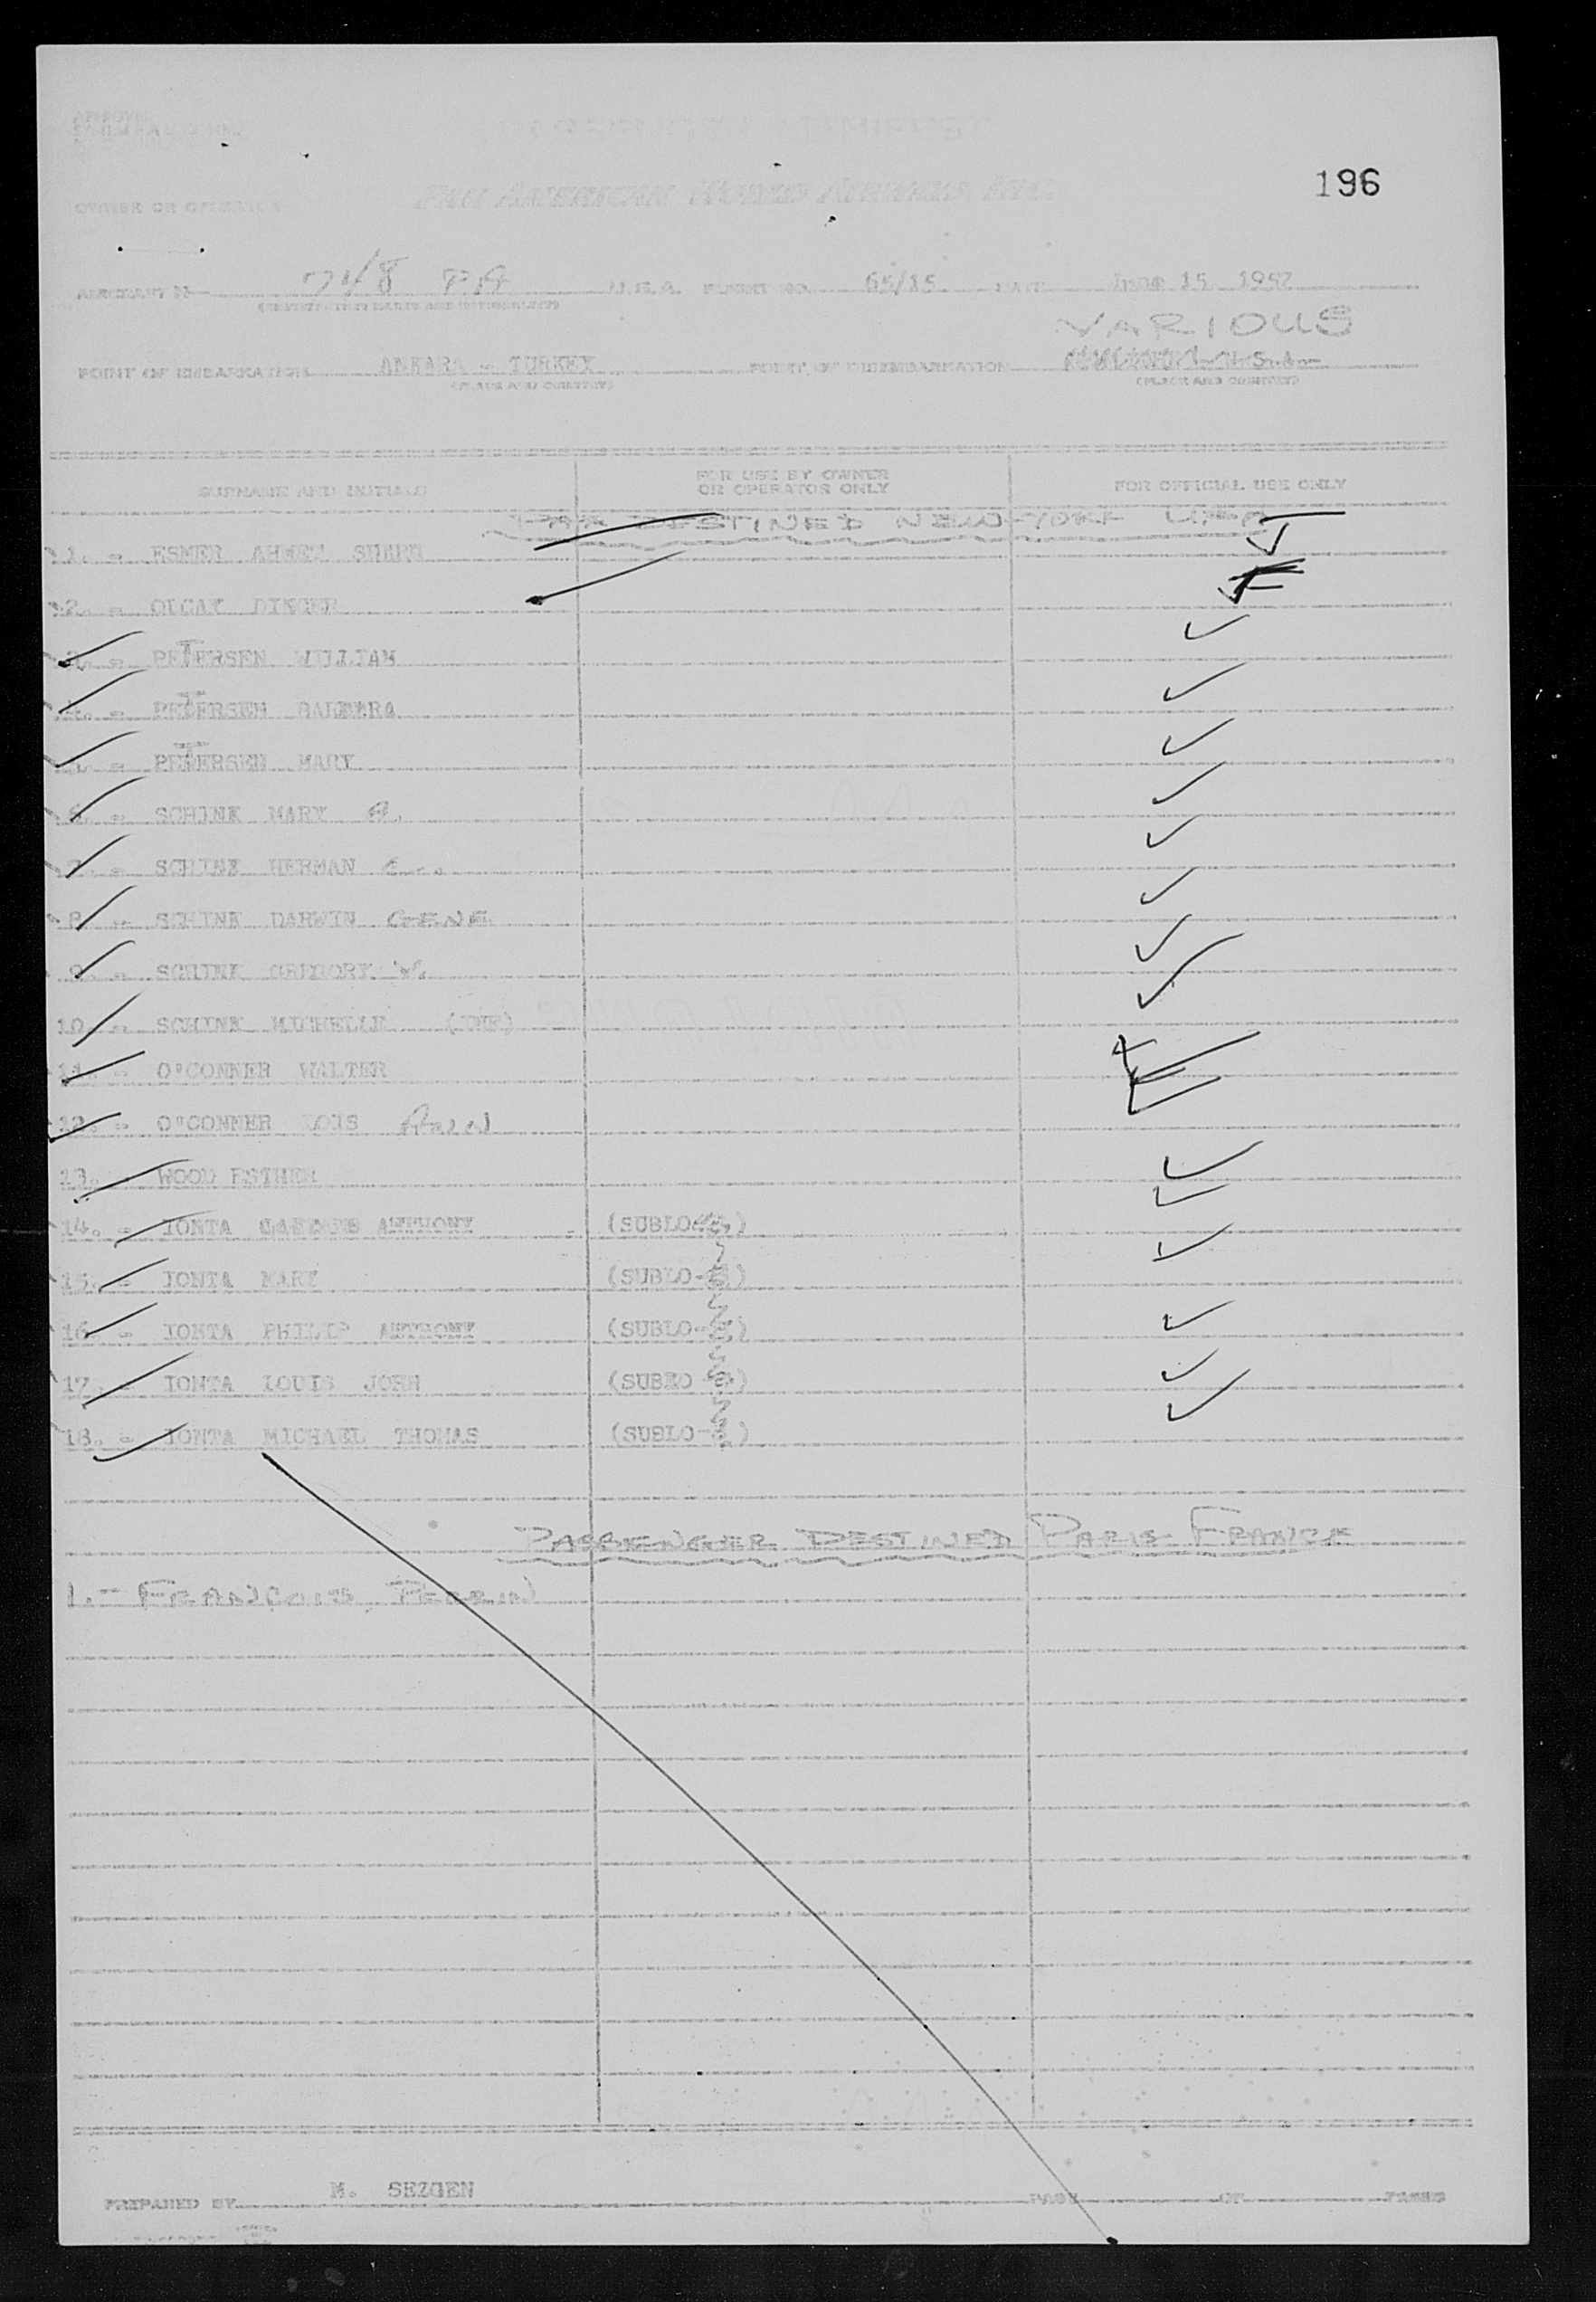 PASSENGER MANIFEST
196
OWNER OR OPERATOR PAN AMERICAN WORLD AIRWAYS, INC.
AIRCRAFT N 748 PA U.S.A. FLIGHT NO. 65/15 DATE 15 1952
VARIOUS
POINT OF EMBARKATION ANKARA - TURKEY POINT OF DISEMBARKATION U.S.A.
(PLACE AND COUNTRY) (PLACE AND COUNTRY)
SURNAME AND INITIALS FOR USE BY OWNER OR OPERATOR ONLY FOR OFFICIAL USE ONLY
DESTINED NEW-YORK USA
1. - ESMER AHMET
2. - OLCAY DINCER
3. - PETERSEN WILLIAM
4. - PETERSEN BARBARA
5. - PETERSEN MARY
6. - SCHINK MARY A.
7. - SCHINK HERMAN
8. - SCHINK DARWIN GENE
9. - SCHINK GREGORY
10. - SCHINK MICHELLE (INF)
11. - O'CONNER WALTER
12. - O'CONNER LOIS ANN
13. - WOOD ESTHER
14. - IONTA ANTHONY (SUBLO
15. - IONTA MARY (SUBLO-
16. - IONTA PHILIP ANTHONY (SUBLO-
17. - IONTA LOUIS JOHN (SUBLO-
18. - IONTA MICHAEL THOMAS (SUBLO-
PASSENGER DESTINED PARIS FRANCE
1. - FRANÇOIS,
PREPARED BY M. SEZGEN PAGE OF PAGES